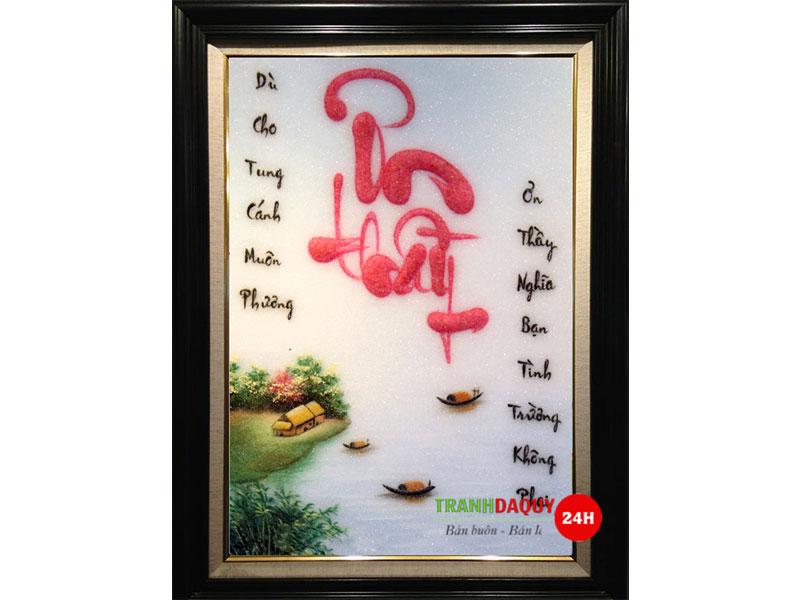 Ơn thầy
Dù
Cho
Tung
Cánh
Muôn
Phương
Ơn
Thầy
Nghĩa
Bạn
Tình
Trường
Không
Phai
TRANHDAQUY
24H
Bán buôn - Bán lẻ